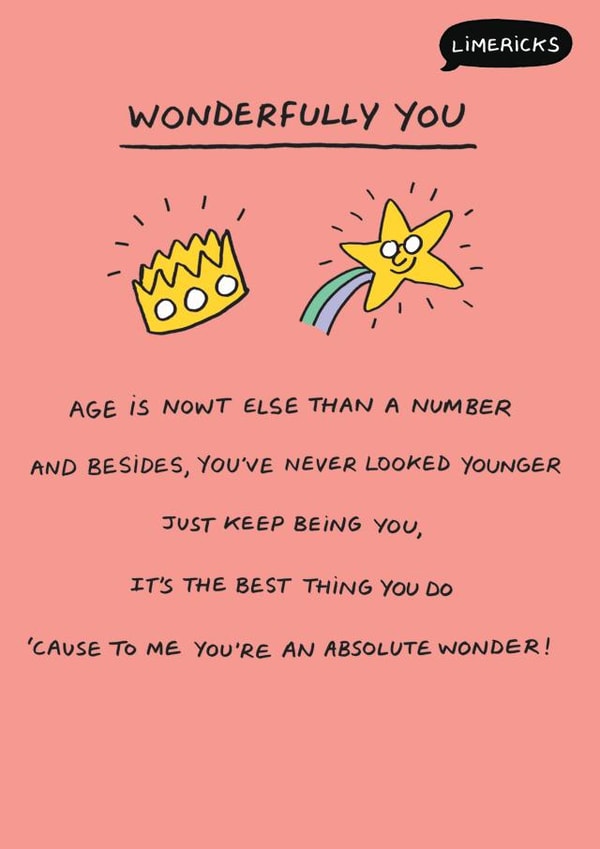 LiMERiCKS
WONDERFULLY YOU
AGE iS NOWT ELSE THAN A NUMBER
AND BESiDES, YOU'VE NEVER LOOKED YOUNGER
JUST KEEP BEiNG YOU,
IT'S THE BEST THiNG YOU DO
'CAUSE TO ME YOU'RE AN ABSOLUTE WONDER!